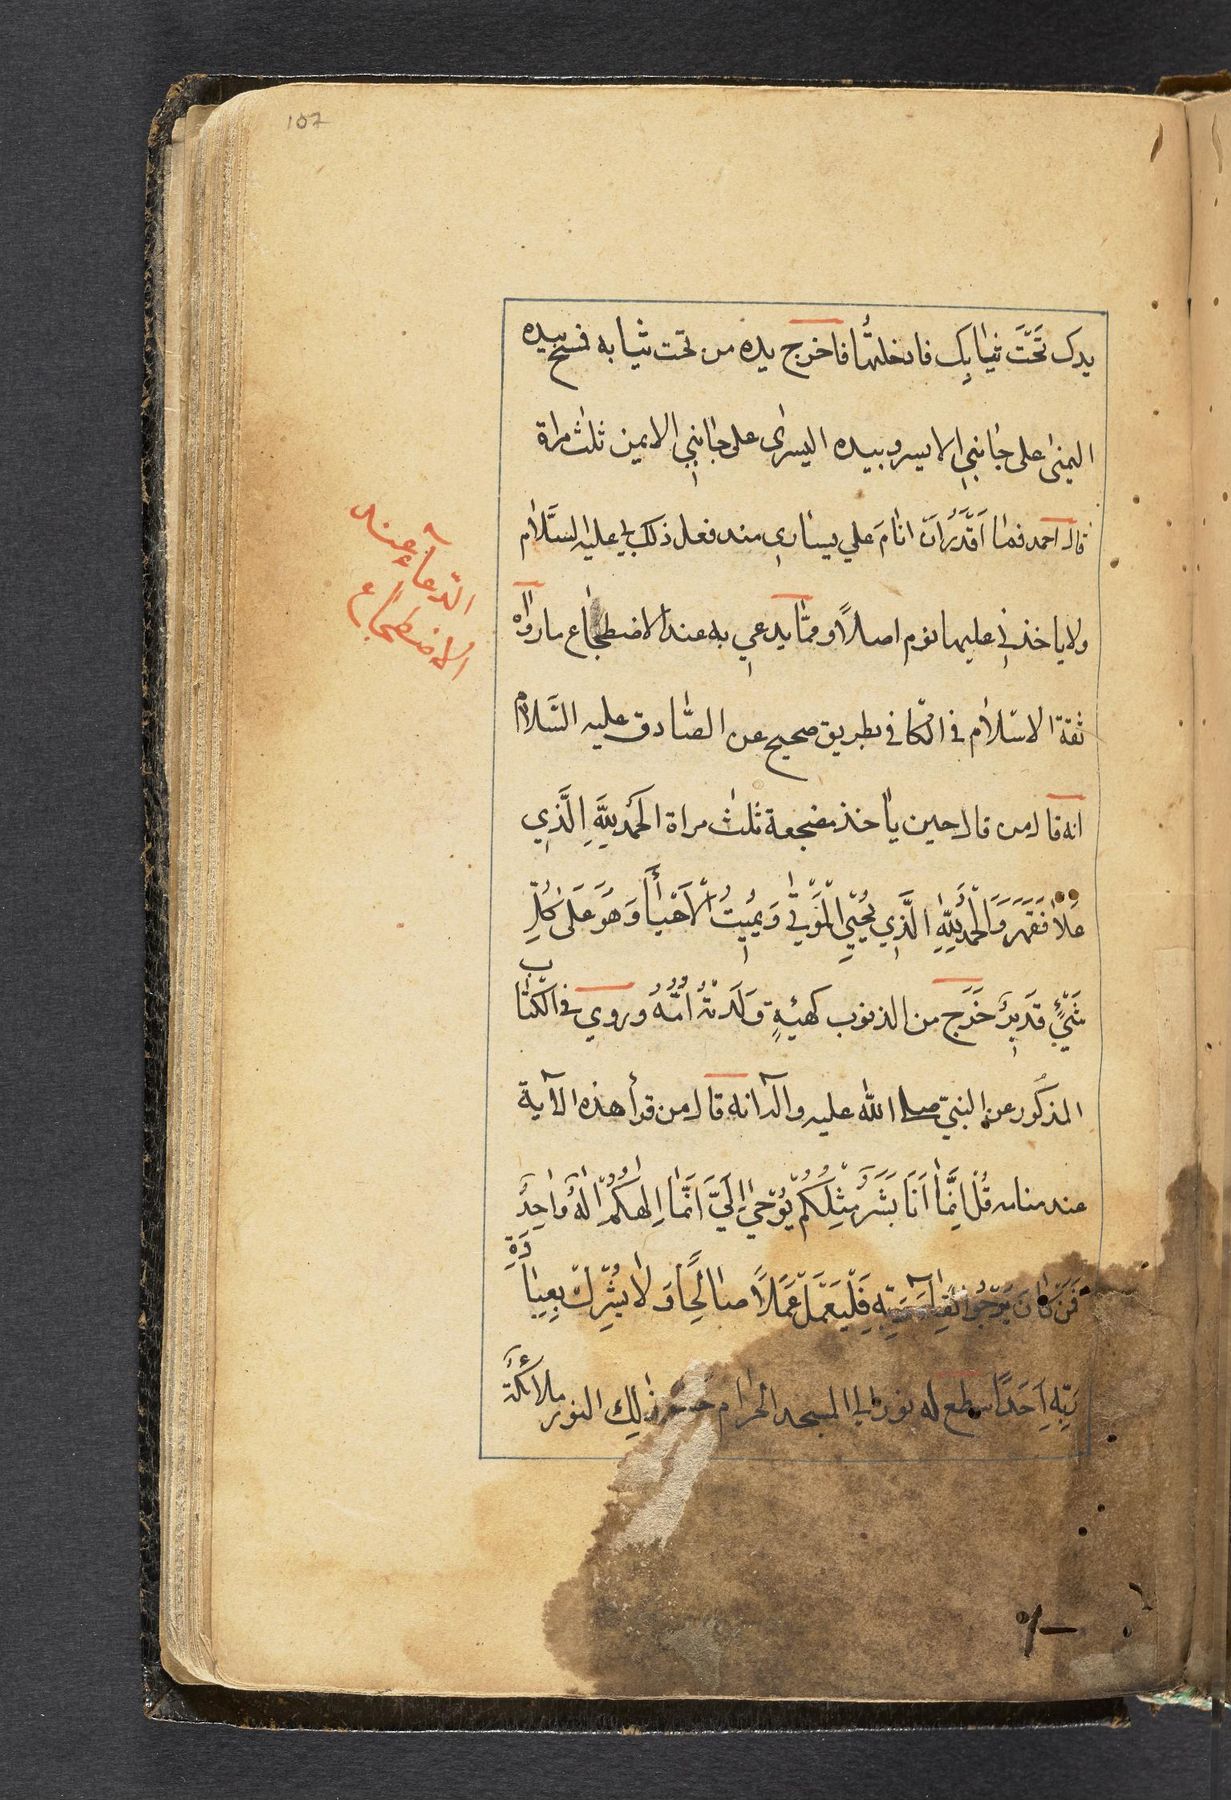 107
يدك تَحْتَ ثيابِك فادخلتُها فاخرج يده من تحت ثيابه فمسح بيده
اليمنى على جانبي الايسر وبيده اليسرى على جانبي الايمن ثلث مراة
قال احمد فما اَقْدَرُ اَن انامَ على يساري منذ فعل ذلك بي عليه السَّلام
ولا ياخذني عليها نوم اصلاً وممّا يدعي به عند الاضطجاع ما رواه
الدّعاء عند
الاضطجاع
ثقة الاسْلام في الكافي بطريق صحيح عن الصّادق عليه السّلام
انه قال من قال حين ياخذ مضجعة ثلث مراة الحَمْدُ لِلَّهِ الَّذي
عَلاٰ فَقَهَرَ وَالْحَمْدُ لِلّهِ الَّذي يُحْيِي الْمَوْتىٰ وَيُميتُ الْاَحْيٰاَءَ وَهُوَ عَلىٰ كُلِّ
شَيْءٍ قَديرٌ خَرَجَ من الذنوب كهيئةٍ وَلَدَتْهُ اُمُّهُ وروي في الكتاب
المذكور عن النبيّ صلى الله عليه واله انه قال من قرأ هذه الآية
عند منامه قُلْ اِنَّمٰا اَنَا بَشَرٌ مِثْلُكُمْ يُوْحىٰ اِلَيَّ اَنَّمٰا اِلٰهُكُمْ اِلٰهٌ وٰاحِدٌ
فَمَنْ كٰانَ يَرْجُوا لِقٰآءَ رَبِّهِ فَلْيَعْمَلْ عَمَلاً صٰالِحًا وَلاٰ يُشْرِكْ بِعِبٰادَةِ
رَبِّهِ اَحَدًا سطع له نور الى المسجد الحرام حشو ذٰلِك النور ملائكةٌ